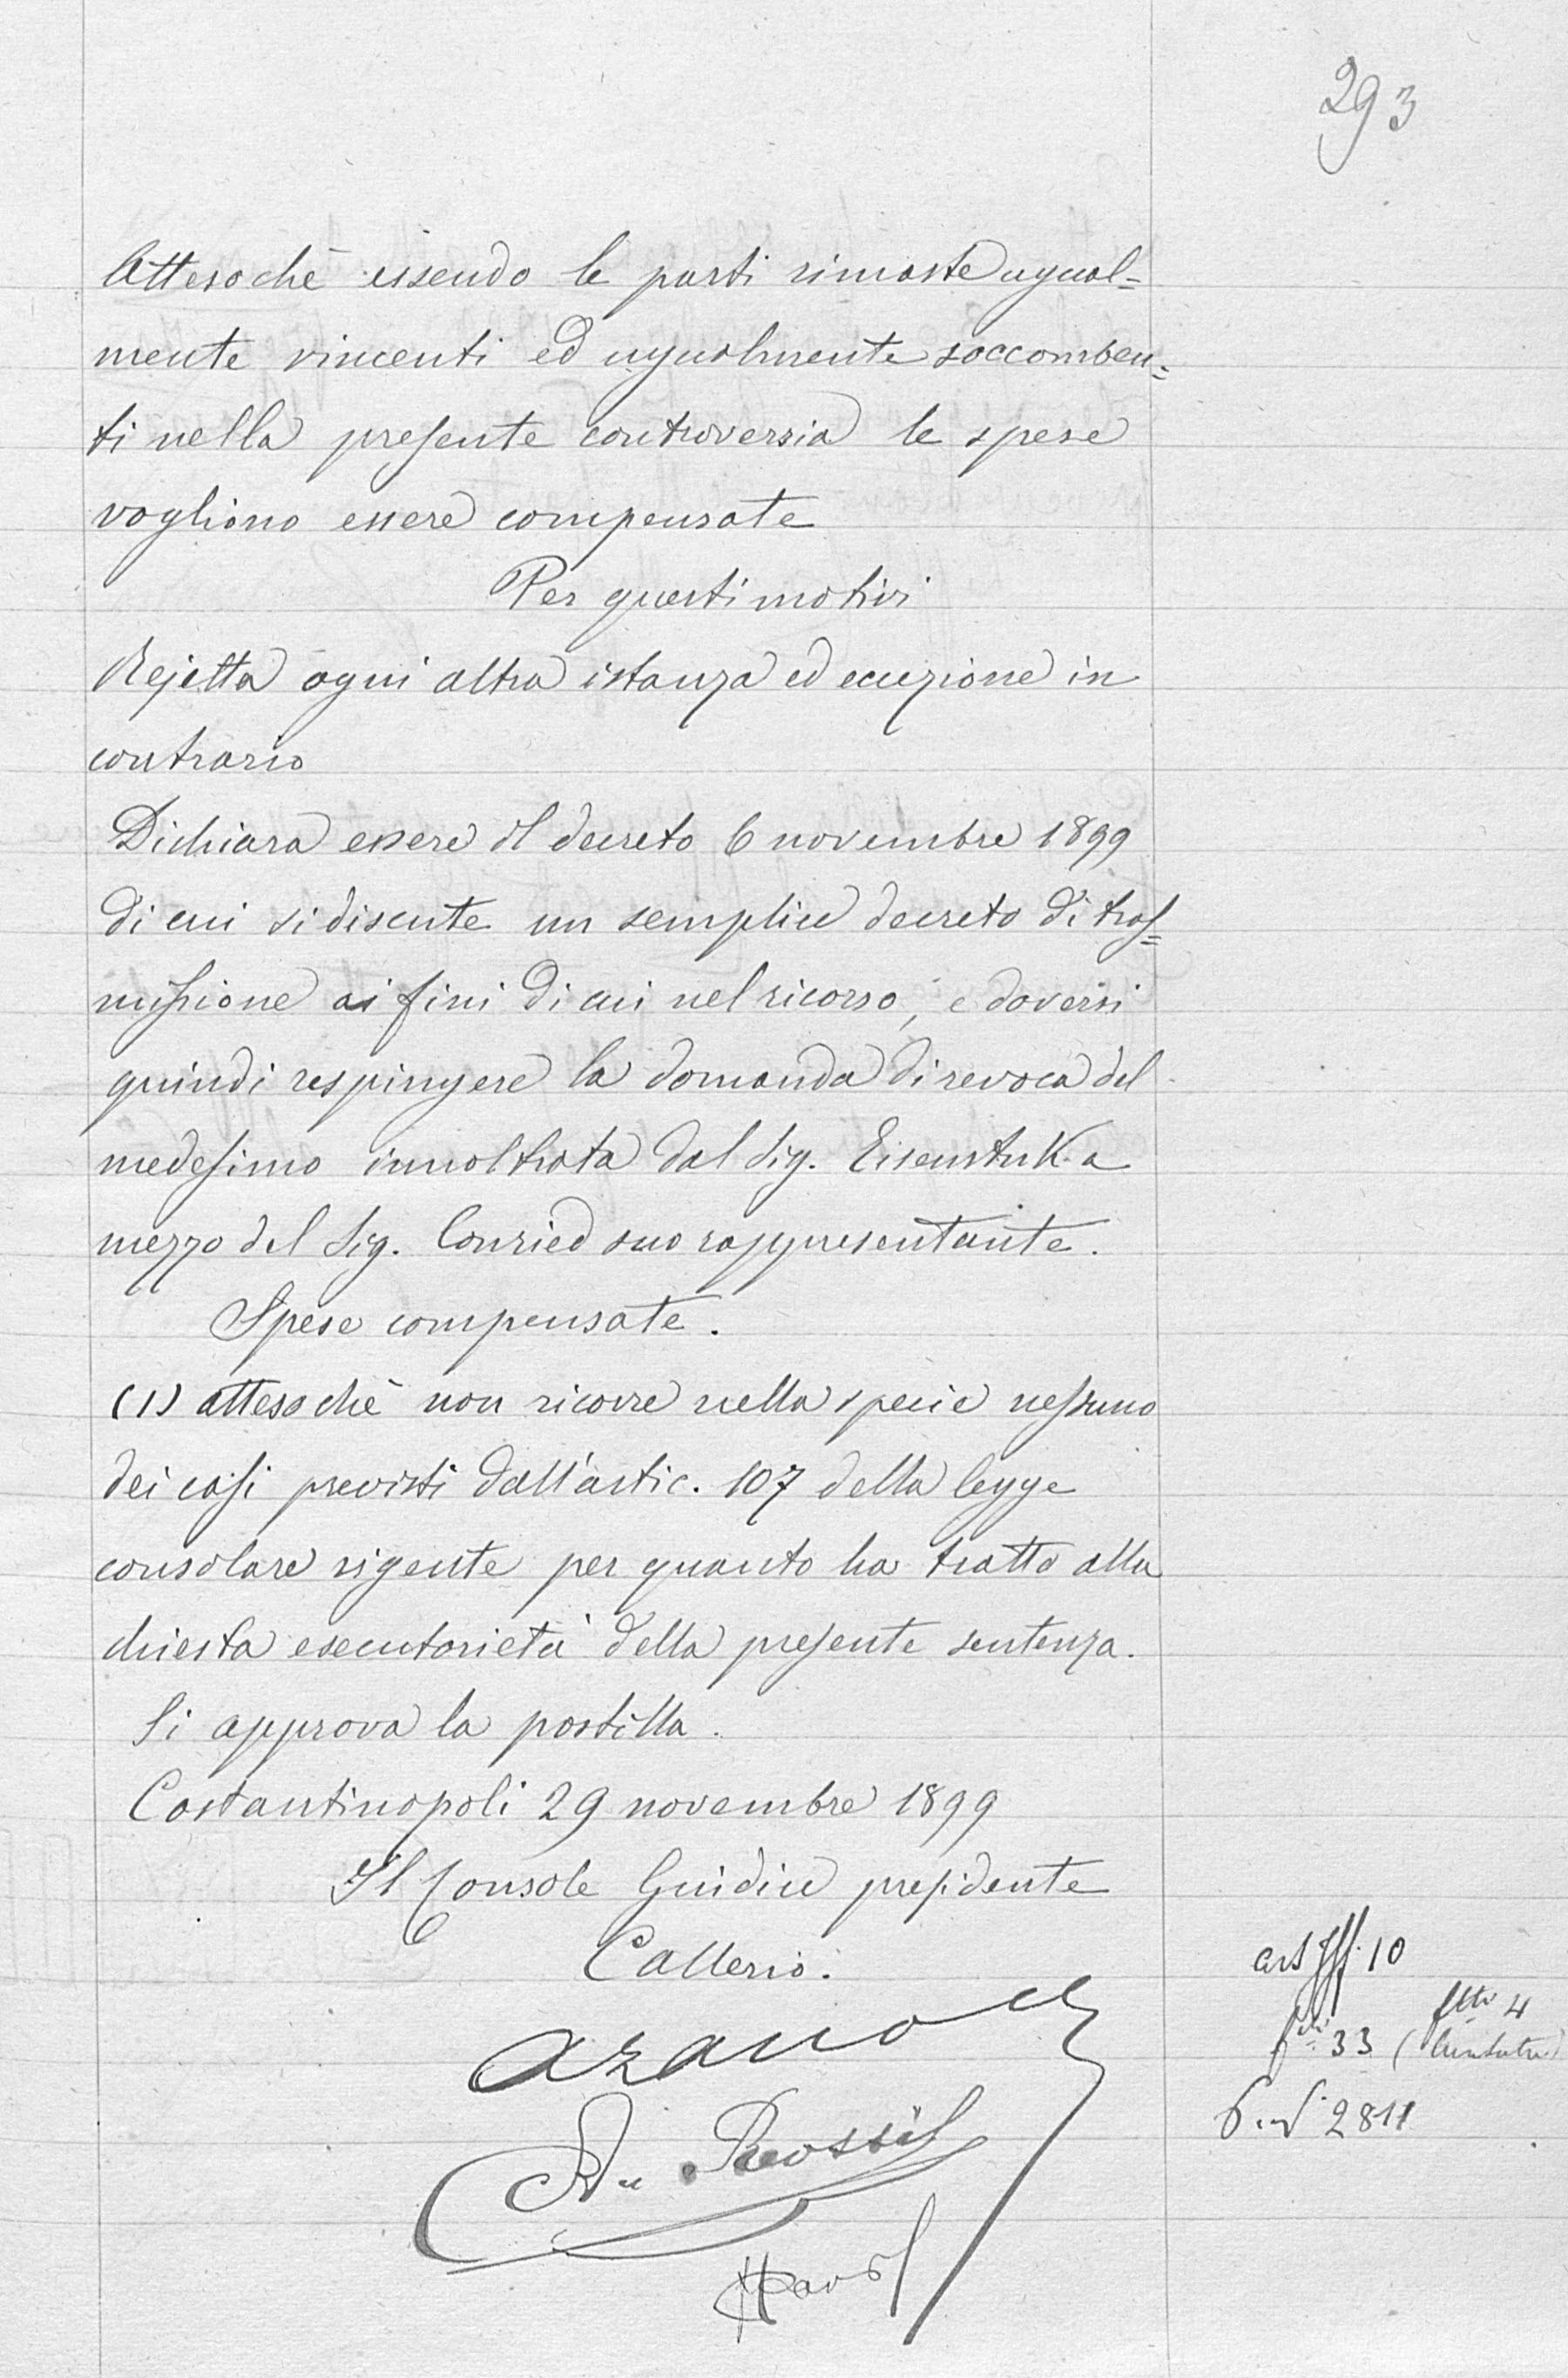 293
Attesochè essendo le parti rimaste ugual=
mente vincenti ed ugualmente soccomben=
ti nella presente controversia le spese
vogliono essere compensate
Per questi motivi
Rejetta ogni altra istanza ed eccezione in
contrario
Dichiara essere il decreto 6 novembre 1899
di cui si discute un semplice decreto di tras=
missione ai fini di cui nel ricorso, e doversi
quindi respingere la domanda di revoca del
medesimo innoltrata dal Sig. Eisenstuk a
mezzo del Sig. Conried suo rappresentante.
Spese compensate.
(1) attesochè non ricorre nella specie nessuno
dei casi previsti dall'artic. 107 della legge
consolare vigente per quanto ha tratto alla
chiesta esecutorietà della presente sentenza.
Si approva la postilla.
Costantinopoli 29 novembre 1899
Il Console Giudice presidente
Callerio.
A. Rossi
10
33
4
2811